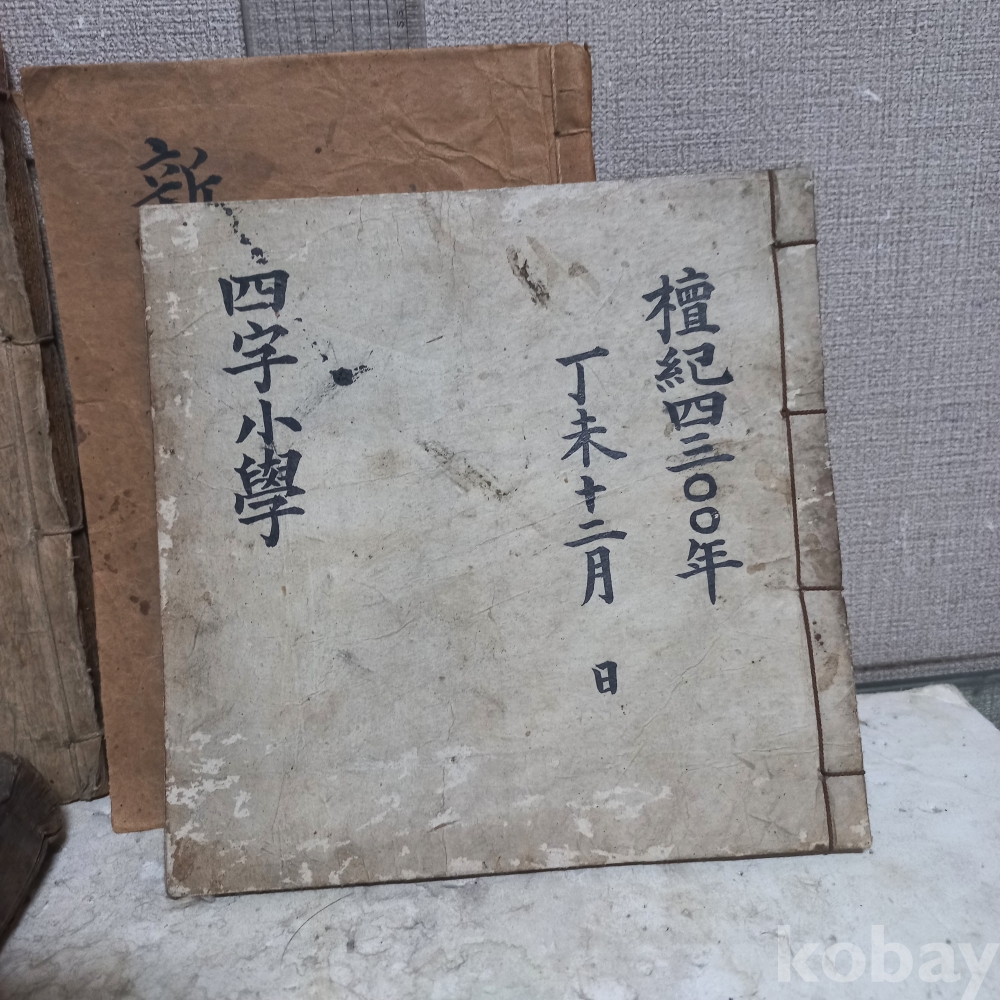 檀紀四三〇〇年
丁未十二月 日
四字小學
新
kobay